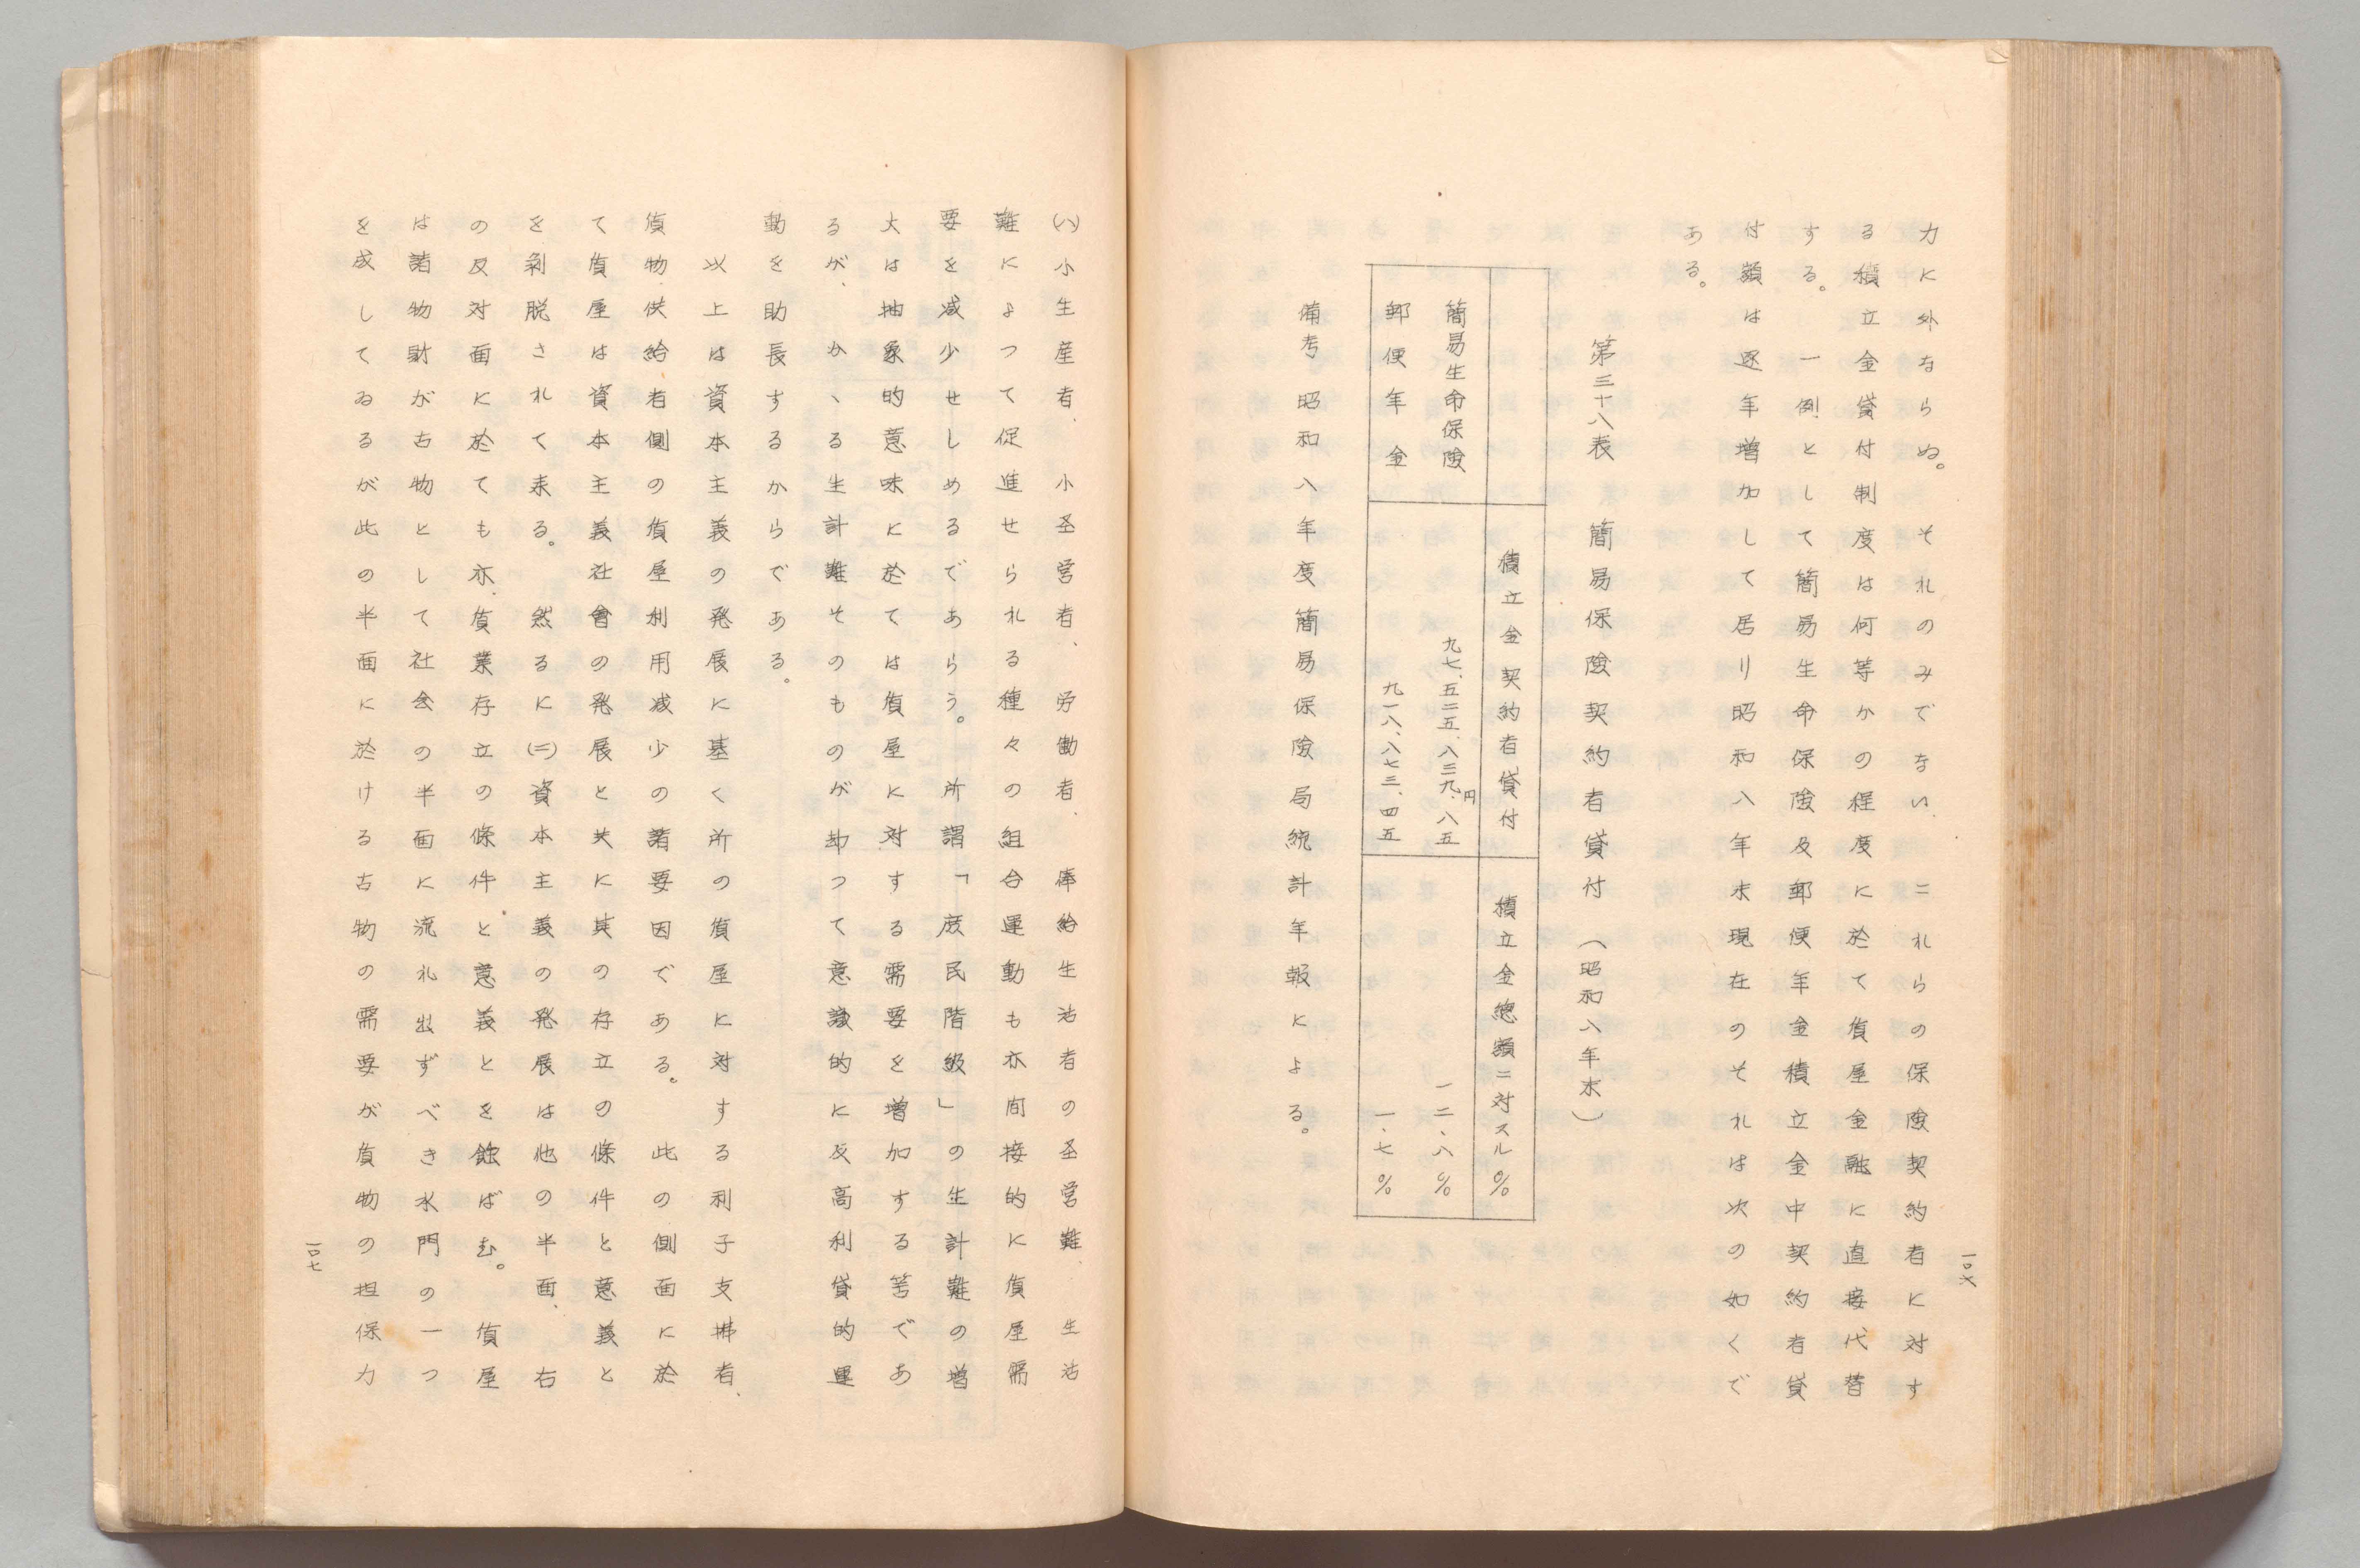 力に外ならぬ。それのみでない、これらの保険契約者に対す
る積立金貸付制度は何等かの程度に於て質屋金融に直接代替
する。一例として簡易生命保険及郵便年金積立金中契約者貸
付額は逐年増加して居り昭和八年末現在のそれは次の如くで
ある。
第三十八表 簡易保険契約者貸付（昭和八年末）
積立金契約者貸付 積立金總額ニ対スル%
簡易生命保険 九七、五二五、八三九、八五円 一二、八%
郵便年金 九一八、八七三、四五 一、七%
備考 昭和八年度簡易保険局統計年報による。
一〇六
(ハ)小生産者、小圣営者、労働者、俸給生活者の圣営難、生活
難によつて促進せられる種々の組合運動も亦間接的に質屋需
要を减少せしめるであらう。所謂「庶民階級」の生計難の増
大は抽象的意味に於ては質屋に対する需要を増加する筈であ
るが、かゝる生計難そのものが却つて意識的に反高利貸的運
動を助長するからである。
以上は資本主義の発展に基く所の質屋に対する利子支拂者、
質物供給者側の質屋利用减少の諸要因である。此の側面に於
て質屋は資本主義社會の発展と共に其の存立の條件と意義と
を剥脱されて来る。然るに(二)資本主義の発展は他の半面、右
の反対面に於ても亦、質業存立の條件と意義とを蝕ばむ。質屋
は諸物財が古物として社会の半面に流れ出ずべき水門の一つ
を成してゐるが此の半面に於ける古物の需要が質物の担保力
一〇七